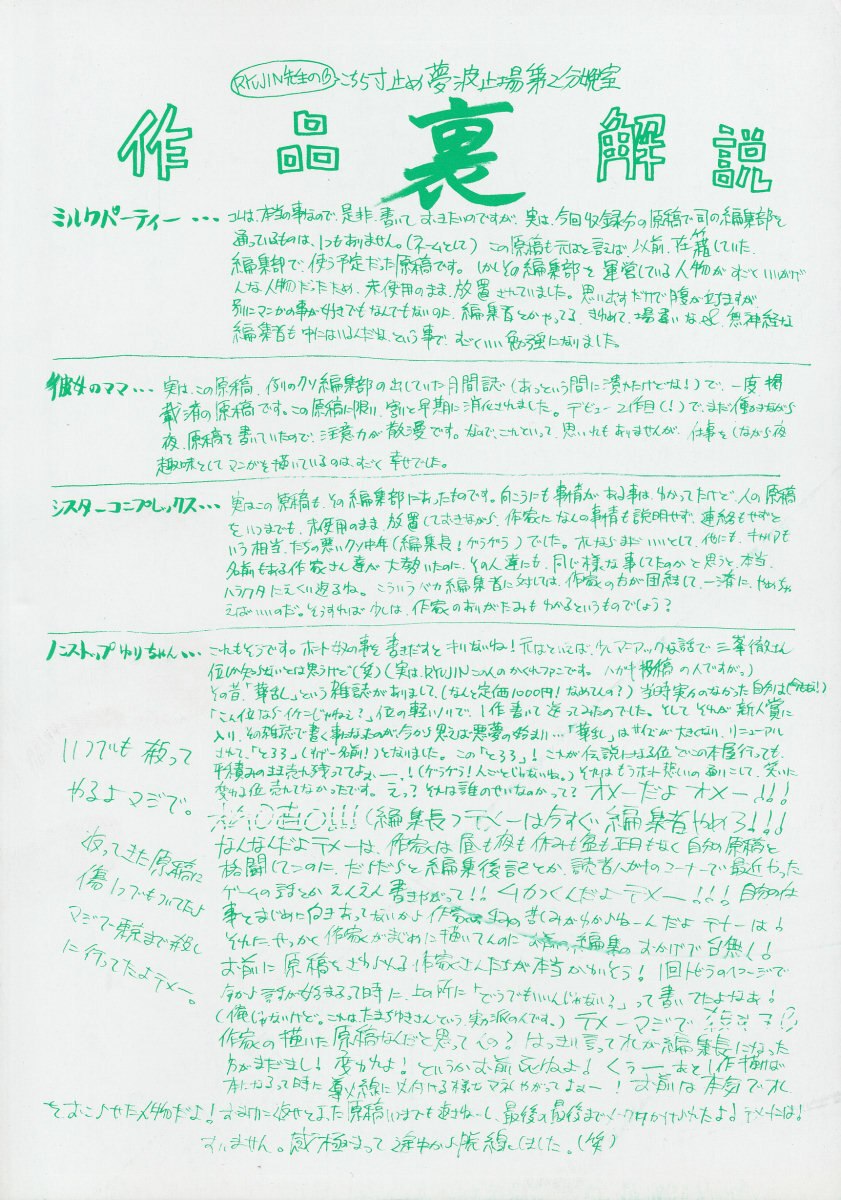 RYUJIN先生の こちら寸止め夢波止場第2分娩室
作品裏解説
ミルクパーティー・・・ コレは、本当の事なので、是非、書いておきたいのですが、実は、今回収録分の原稿で司の編集部を
通っているものは、1つもありません。(ネームとして) この原稿も元はと言えば、以前、在籍していた
編集部で、使う予定だった原稿です。しかしその編集部を運営している人物がすごくいいかげ
んな人物だったため、未使用のまま、放置されていました。思い出すだけで腹が立ちますが
別にマンガの事が好きでもなんでもないのに、編集者とかやってる、きわめて、場違いな 無神経な
編集者も中にはいるんだな、という事で、すごくいい勉強になりました。
彼女のママ・・・ 実は、この原稿、例のクソ編集部の出していた月間誌(あっという間に潰れたけどな!)で、一度掲
載済の原稿です。この原稿に限り、割と早期に消化されました。デビュー2作目(!)で、まだ働きながら
夜、原稿を書いていたので、注意力が散漫です。なので、これといって、思い入れもありませんが、仕事をしながら夜
趣味としてマンガを描いているのは、すごく幸せでした。
シスターコンプレックス・・・ 実はこの原稿も、その編集部にあったものです。向こうにも事情がある事は、わかってたけど、人の原稿
をいつまでも、未使用のまま放置しておきながら、作家になんの事情も説明せず、連絡もせずと
いう相当、たちの悪いクソ中年(編集長!ゲラゲラ)でした。オレならまだいいとして、他にも、キャリアも
名前もある作家さん達が大勢いたのに、その人達にも、同じ様な事してたのかと思うと、本当、
ハラワタにえくい返るね。こういうバカ編集者に対しては、作家の方が団結して、一斉に、やめちゃ
えばいいのだ。そうすれば少しは、作家のありがたみもわかるというものでしょう?
ノンストップゆりちゃん・・・ これもそうです。ホント奴の事を書きだすとキリがないね!元はといえば、少しマニアックな話で三峯徹さん
位しか知らないとは思うけど(笑)(実は、RYUJINこの人のかくれファンです。ハガキ投稿の人ですが。)
その昔「華乱」という雑誌がありまして、(なんと定価1000円!なめてんの?)当時実力のなかった自分は(今もね!)
「こん位ならイケンじゃねえ?」位の軽いノリで、1作書いて送ってみたのでした。そして それが新人賞に
入り、その雑誌で書く事になったのが今から思えば悪夢の始まり…「華乱」は サイズが大きくなり、リニューアル
されて、「とろろ」(すげー名前!)となりました。この「とろろ」!これが伝説になる位どこの本屋行っても、
平積みのまま売れ残っててよぉー、!(ゲラゲラ!人ごとじゃないね。)それはもうホント想いの 通りこして、笑いに
変わる位売れてなかったです。えっ?それは誰のせいなのかって? オメーだよオメー!!!
(編集長)テメーは今すぐ編集者やめろ!!!
なんなんだよテメーは、作家は昼も夜も休みも盆も正月もなく自分の原稿と
格闘してンのに、だらだらと編集後記とか、読者ハガキのコーナーで最近やった
ゲームの話とかえんえん書きやがって!!ムカつくんだよテメー!!!自分の仕
事とまじめに向きあってないから作家 の苦しみがわからねーんだよテメーは!
それに、せっかく作家がまじめに描いてんのに お前の編集の おかげで台無し!
お前に原稿をさわられる作家さんたちが本当かわいそう!1回トビラのページで
今から話が始まるって時に、上の所に「どうでもいいんじゃない?」って書いてたよなあ!
(俺じゃないけど。これは、たまちゆきさんという実力派の人です。)テメーマジで
作家の描いた原稿なんだと思ってんの?はっきし言ってオレが編集長になった
方がまだまし!変われよ!というかお前死ねよ!くぅーーあと1作描けば
本になるって時に 以付ける様なマネしやがってよぉー!お前は本気でオレ
をおこらせた人物だよ! 返せと言った原稿いつまでも返さねーし、最後の最後までメーワクかけられたよ!テメーには!
すいません。感極まって途中から脱線しました。(笑)
いつでも殺って
やるよマジで。
返ってきた原稿に
傷1つでもついてたら
マジで東京まで殺し
に行ってたよテメー。